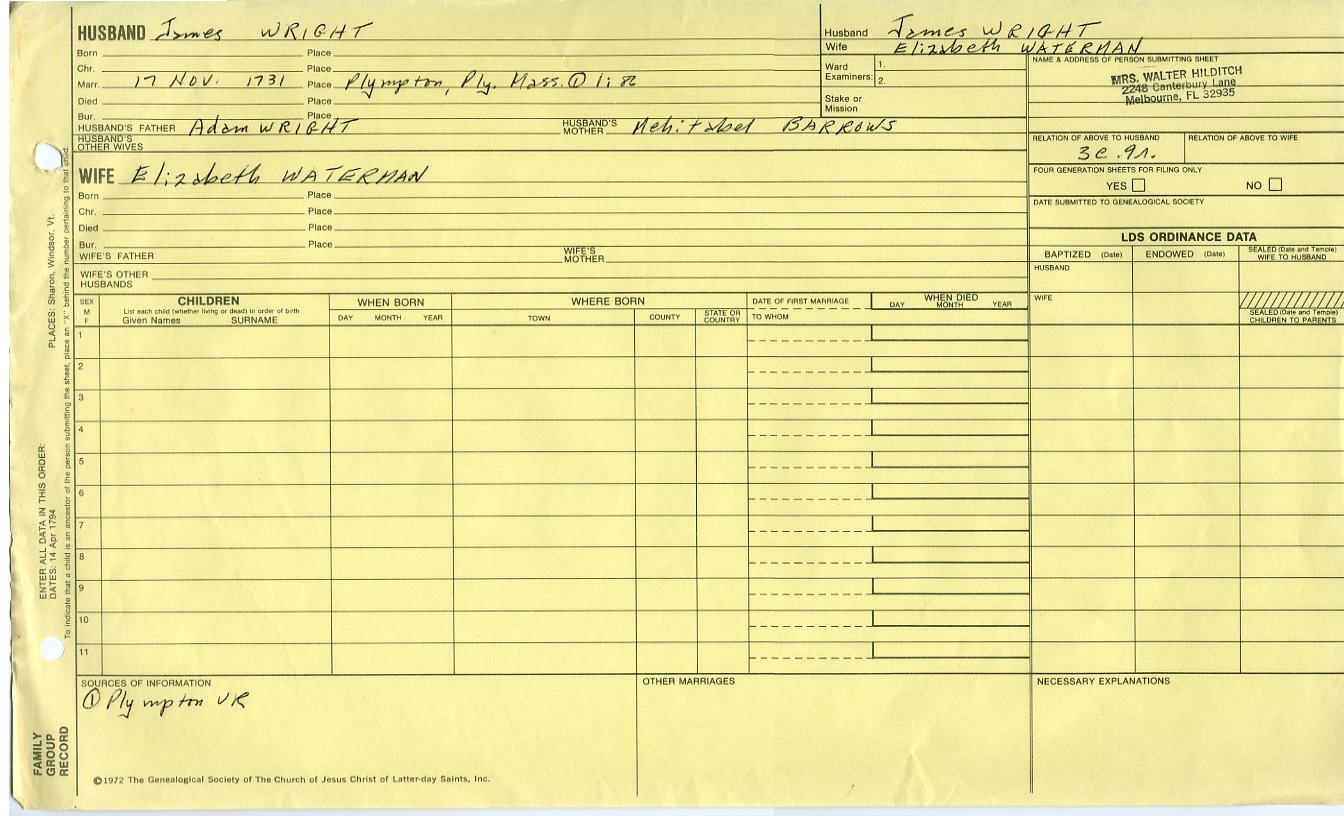 HUSBAND James WRIGHT
Born Place
Chr. Place
Marr. 17 NOV. 1731 Place Plympton, Ply. Mass. ① 1:86
Died Place
Bur. Place
HUSBAND'S FATHER Adam WRIGHT HUSBAND'S MOTHER Mehitabel BARROWS
HUSBAND'S OTHER WIVES
WIFE Elizabeth WATERMAN
Born Place
Chr. Place
Died Place
Bur. Place
WIFE'S FATHER WIFE'S MOTHER
WIFE'S OTHER HUSBANDS
Husband James WRIGHT
Wife Elizabeth WATERMAN
Ward Examiners: 1.
2.
Stake or Mission
NAME & ADDRESS OF PERSON SUBMITTING SHEET
MRS. WALTER HILDITCH
2248 Canterbury Lane
Melbourne, FL 32935
RELATION OF ABOVE TO HUSBAND RELATION OF ABOVE TO WIFE
3c.9r.
FOUR GENERATION SHEETS FOR FILING ONLY
YES NO
DATE SUBMITTED TO GENEALOGICAL SOCIETY
LDS ORDINANCE DATA
BAPTIZED (Date) ENDOWED (Date) SEALED (Date and Temple) WIFE TO HUSBAND
HUSBAND
WIFE
SEALED (Date and Temple) CHILDREN TO PARENTS
SEX M F
CHILDREN
List each child (whether living or dead) in order of birth
Given Names SURNAME
WHEN BORN
DAY MONTH YEAR
WHERE BORN
TOWN COUNTY STATE OR COUNTRY
DATE OF FIRST MARRIAGE
TO WHOM
WHEN DIED
DAY MONTH YEAR
1
2
3
4
5
6
7
8
9
10
11
SOURCES OF INFORMATION
① Plympton VR
OTHER MARRIAGES
NECESSARY EXPLANATIONS
©1972 The Genealogical Society of The Church of Jesus Christ of Latter-day Saints, Inc.
FAMILY GROUP RECORD
ENTER ALL DATA IN THIS ORDER:
DATES: 14 Apr 1794 PLACES: Sharon, Windsor, Vt.
To indicate that a child is an ancestor of the person submitting the sheet, place an "X" behind the number pertaining to that child.